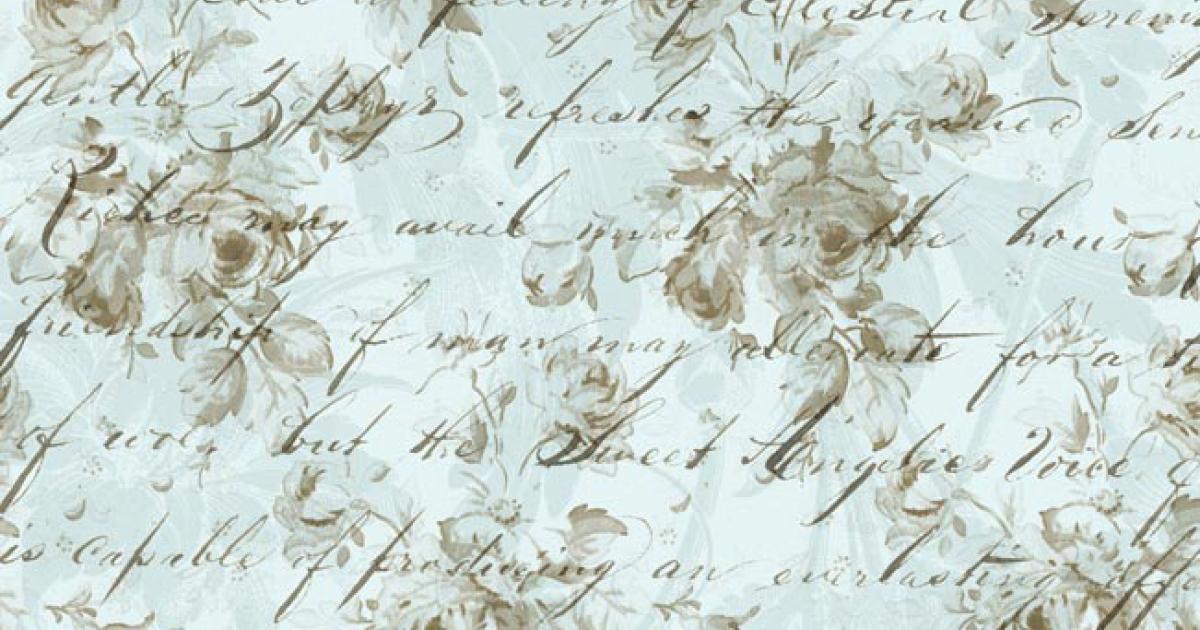 a feeling of Celestial Seren
gentle Zephyr refreshes the wearied Sen
Riches may avail much in the hour
friendship of man may alleviate for a
of woe, but the Sweet Angelic Voice
is Capable of producing an everlasting effe